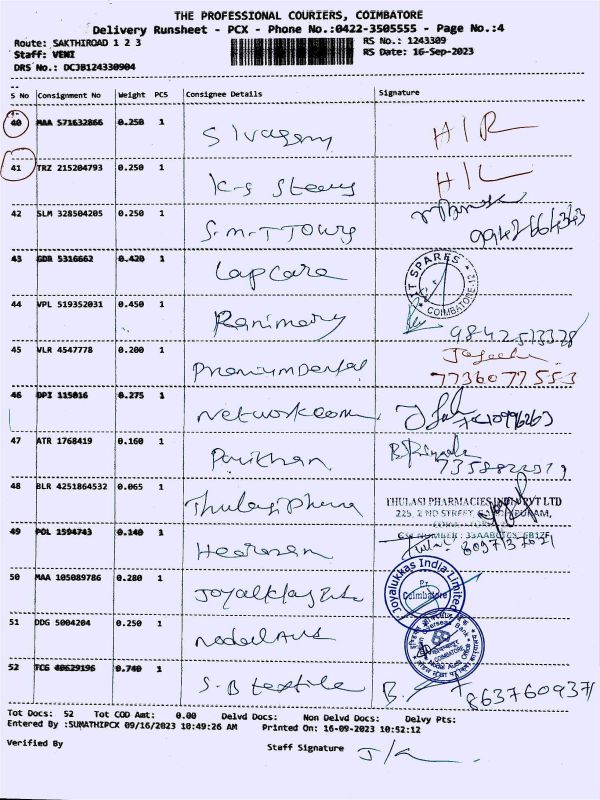 THE PROFESSIONAL COURIERS, COIMBATORE
Delivery Runsheet - PCX - Phone No.:0422-3505555 - Page No.:4
Route: SAKTHIROAD 1 2 3 RS No.: 1243309
Staff: VENI RS Date: 16-Sep-2023
DRS No.: DCJB124330904
S No Consignment No Weight PCS Consignee Details Signature
40 MAA 571632866 0.250 1 H/R
41 TRZ 215204793 0.250 1 K-S Steels H/L
42 SLM 328504205 0.250 1 S.M.T Tours
43 GDR 5316662 0.420 1 Lapcare IT SPARES COIMBATORE-12
44 VPL 519352031 0.450 1 Ranimary 9842513328
45 VLR 4547778 0.200 1 Premium Dental 7736077553
46 DPI 115016 0.275 1 Networkcom
47 ATR 1768419 0.160 1
48 BLR 4251864532 0.065 1 Thulasi Pharma THULASI PHARMACIES INDIA PVT LTD
225, 2 ND STREET,
49 POL 1594743 0.140 1 GST NUMBER :
50 MAA 105089786 0.280 1 Joyalukkas India Limited Coimbatore
51 DDG 5004204 0.250 1 Nodal Aud
52 TCG 40629196 0.740 1 S.B textile B. 8637609371
Tot Docs: 52 Tot COD Amt: 0.00 Delvd Docs: Non Delvd Docs: Delvy Pts:
Entered By :SUMATHIPCX 09/16/2023 10:49:26 AM Printed On: 16-09-2023 10:52:12
Verified By Staff Signature